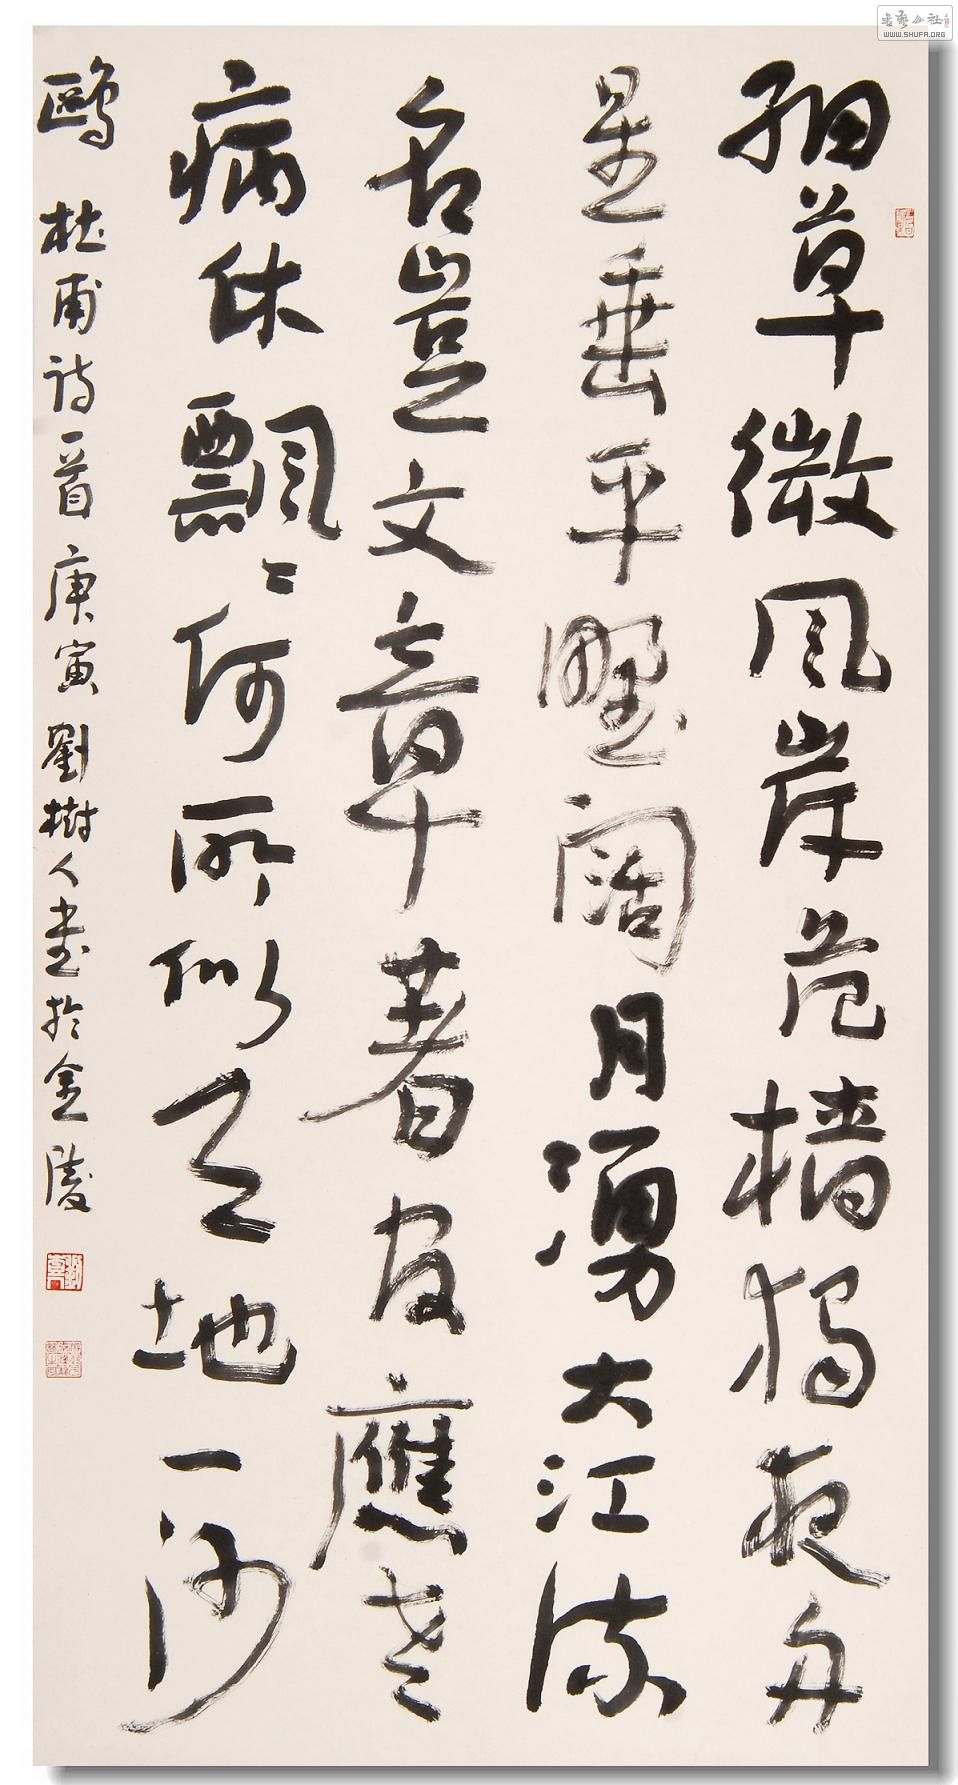 细草微风岸危樯獨夜舟
星垂平野阔月湧大江流
名豈文章著官應老
病休飄飄何所似天地一沙
鷗 杜甫诗一首 庚寅 劉樹人書於金陵
WWW.SHUFA.ORG